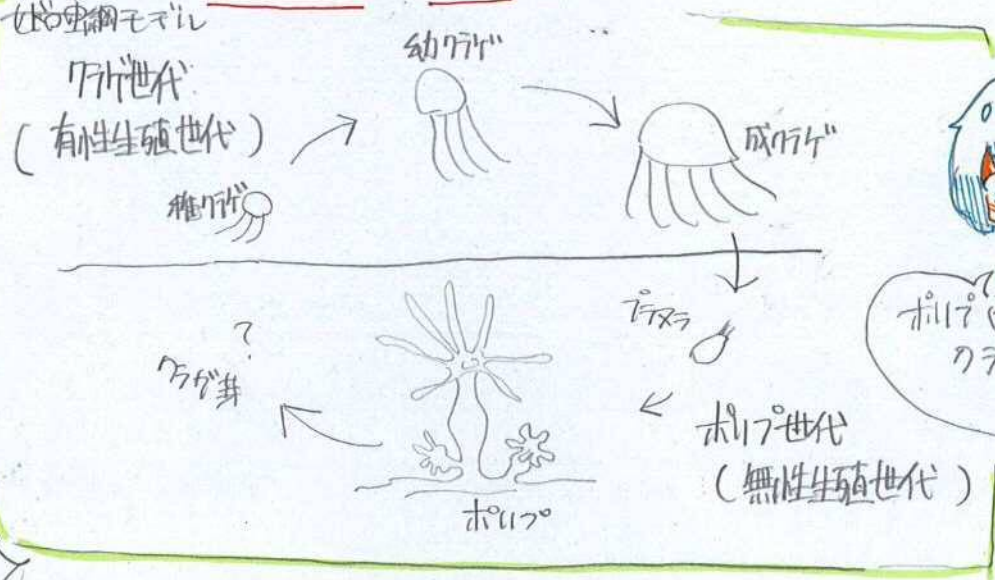 ヒドロ虫綱モデル
クラゲ世代
(有性生殖世代)
稚クラゲ
幼クラゲ
成クラゲ
プラヌラ
ポリプ世代
(無性生殖世代)
ポリプ
?
クラゲ芽
ポリプ
クラ